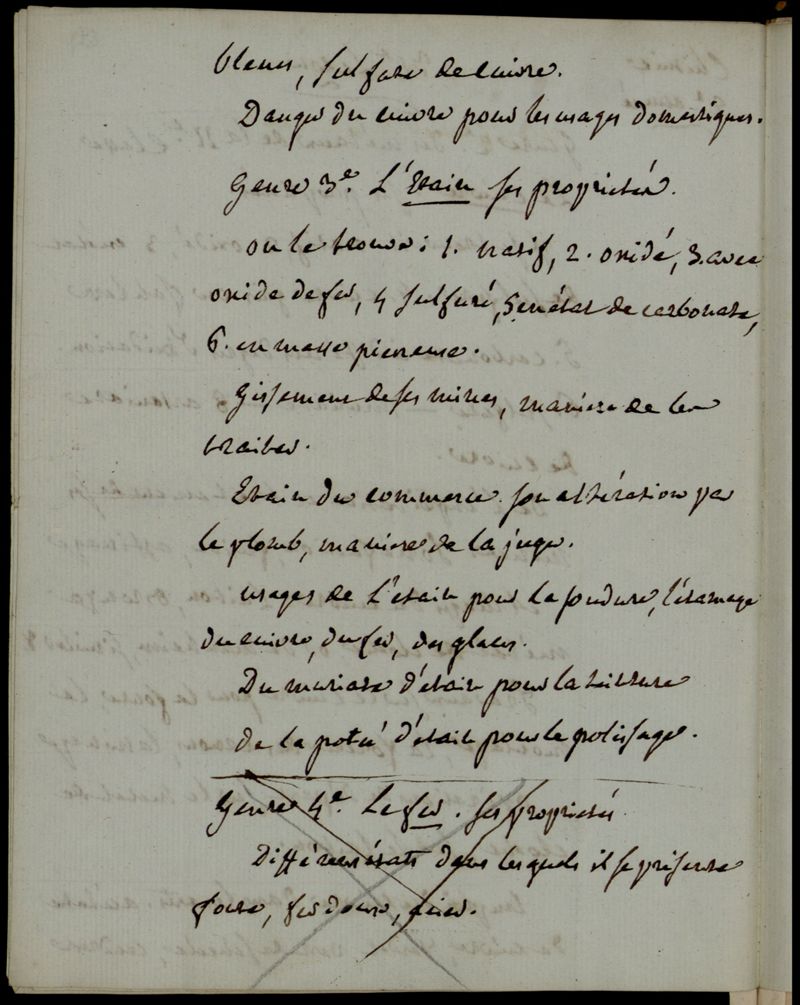 bleues, sulfate de cuivre.
Danger du cuivre pour les usages domestiques.
Genre 3e. L'Etain ses propriétés.
on le trouve: 1. natif, 2. oxidé, 3. avec
oxide de fer, 4 sulfuré, 5 en état de carbonate,
6. en masse pierreuse.
Gissement de ses mines, maniere de les
traiter.
Etain du commerce. son altération par
le plomb, maniere de la juger.
usages de L'étain pour la soudure, l'étamage
du cuivre, du fer, des glaces.
Du muriate d'étain pour la teinture
de la potée d'étain pour le polissage.
Genre 4e. Le fer. ses propriétés
Différens états dans lesquels il se présente
fonte, fer doux, acier.